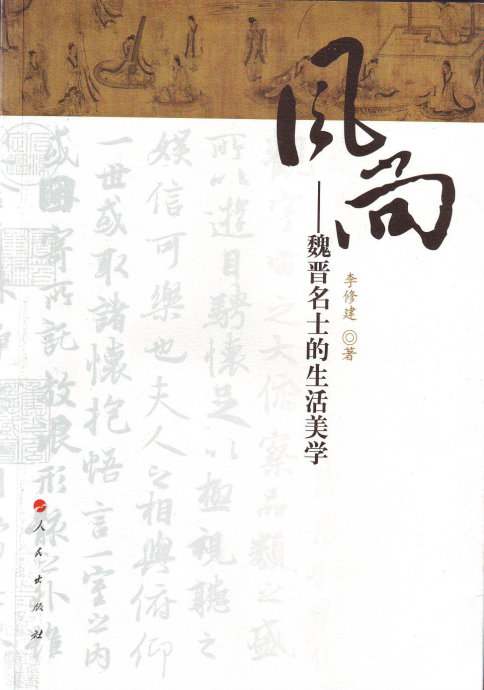 风尚
——魏晋名士的生活美学
李修建 ◎ 著
觀宇宙之大俯察品類之盛
所以遊目騁懷足以極視聽之
娛信可樂也夫人之相與俯仰
一世或取諸懷抱悟言一室之內
或因寄所託放浪形骸之外雖
人民出版社